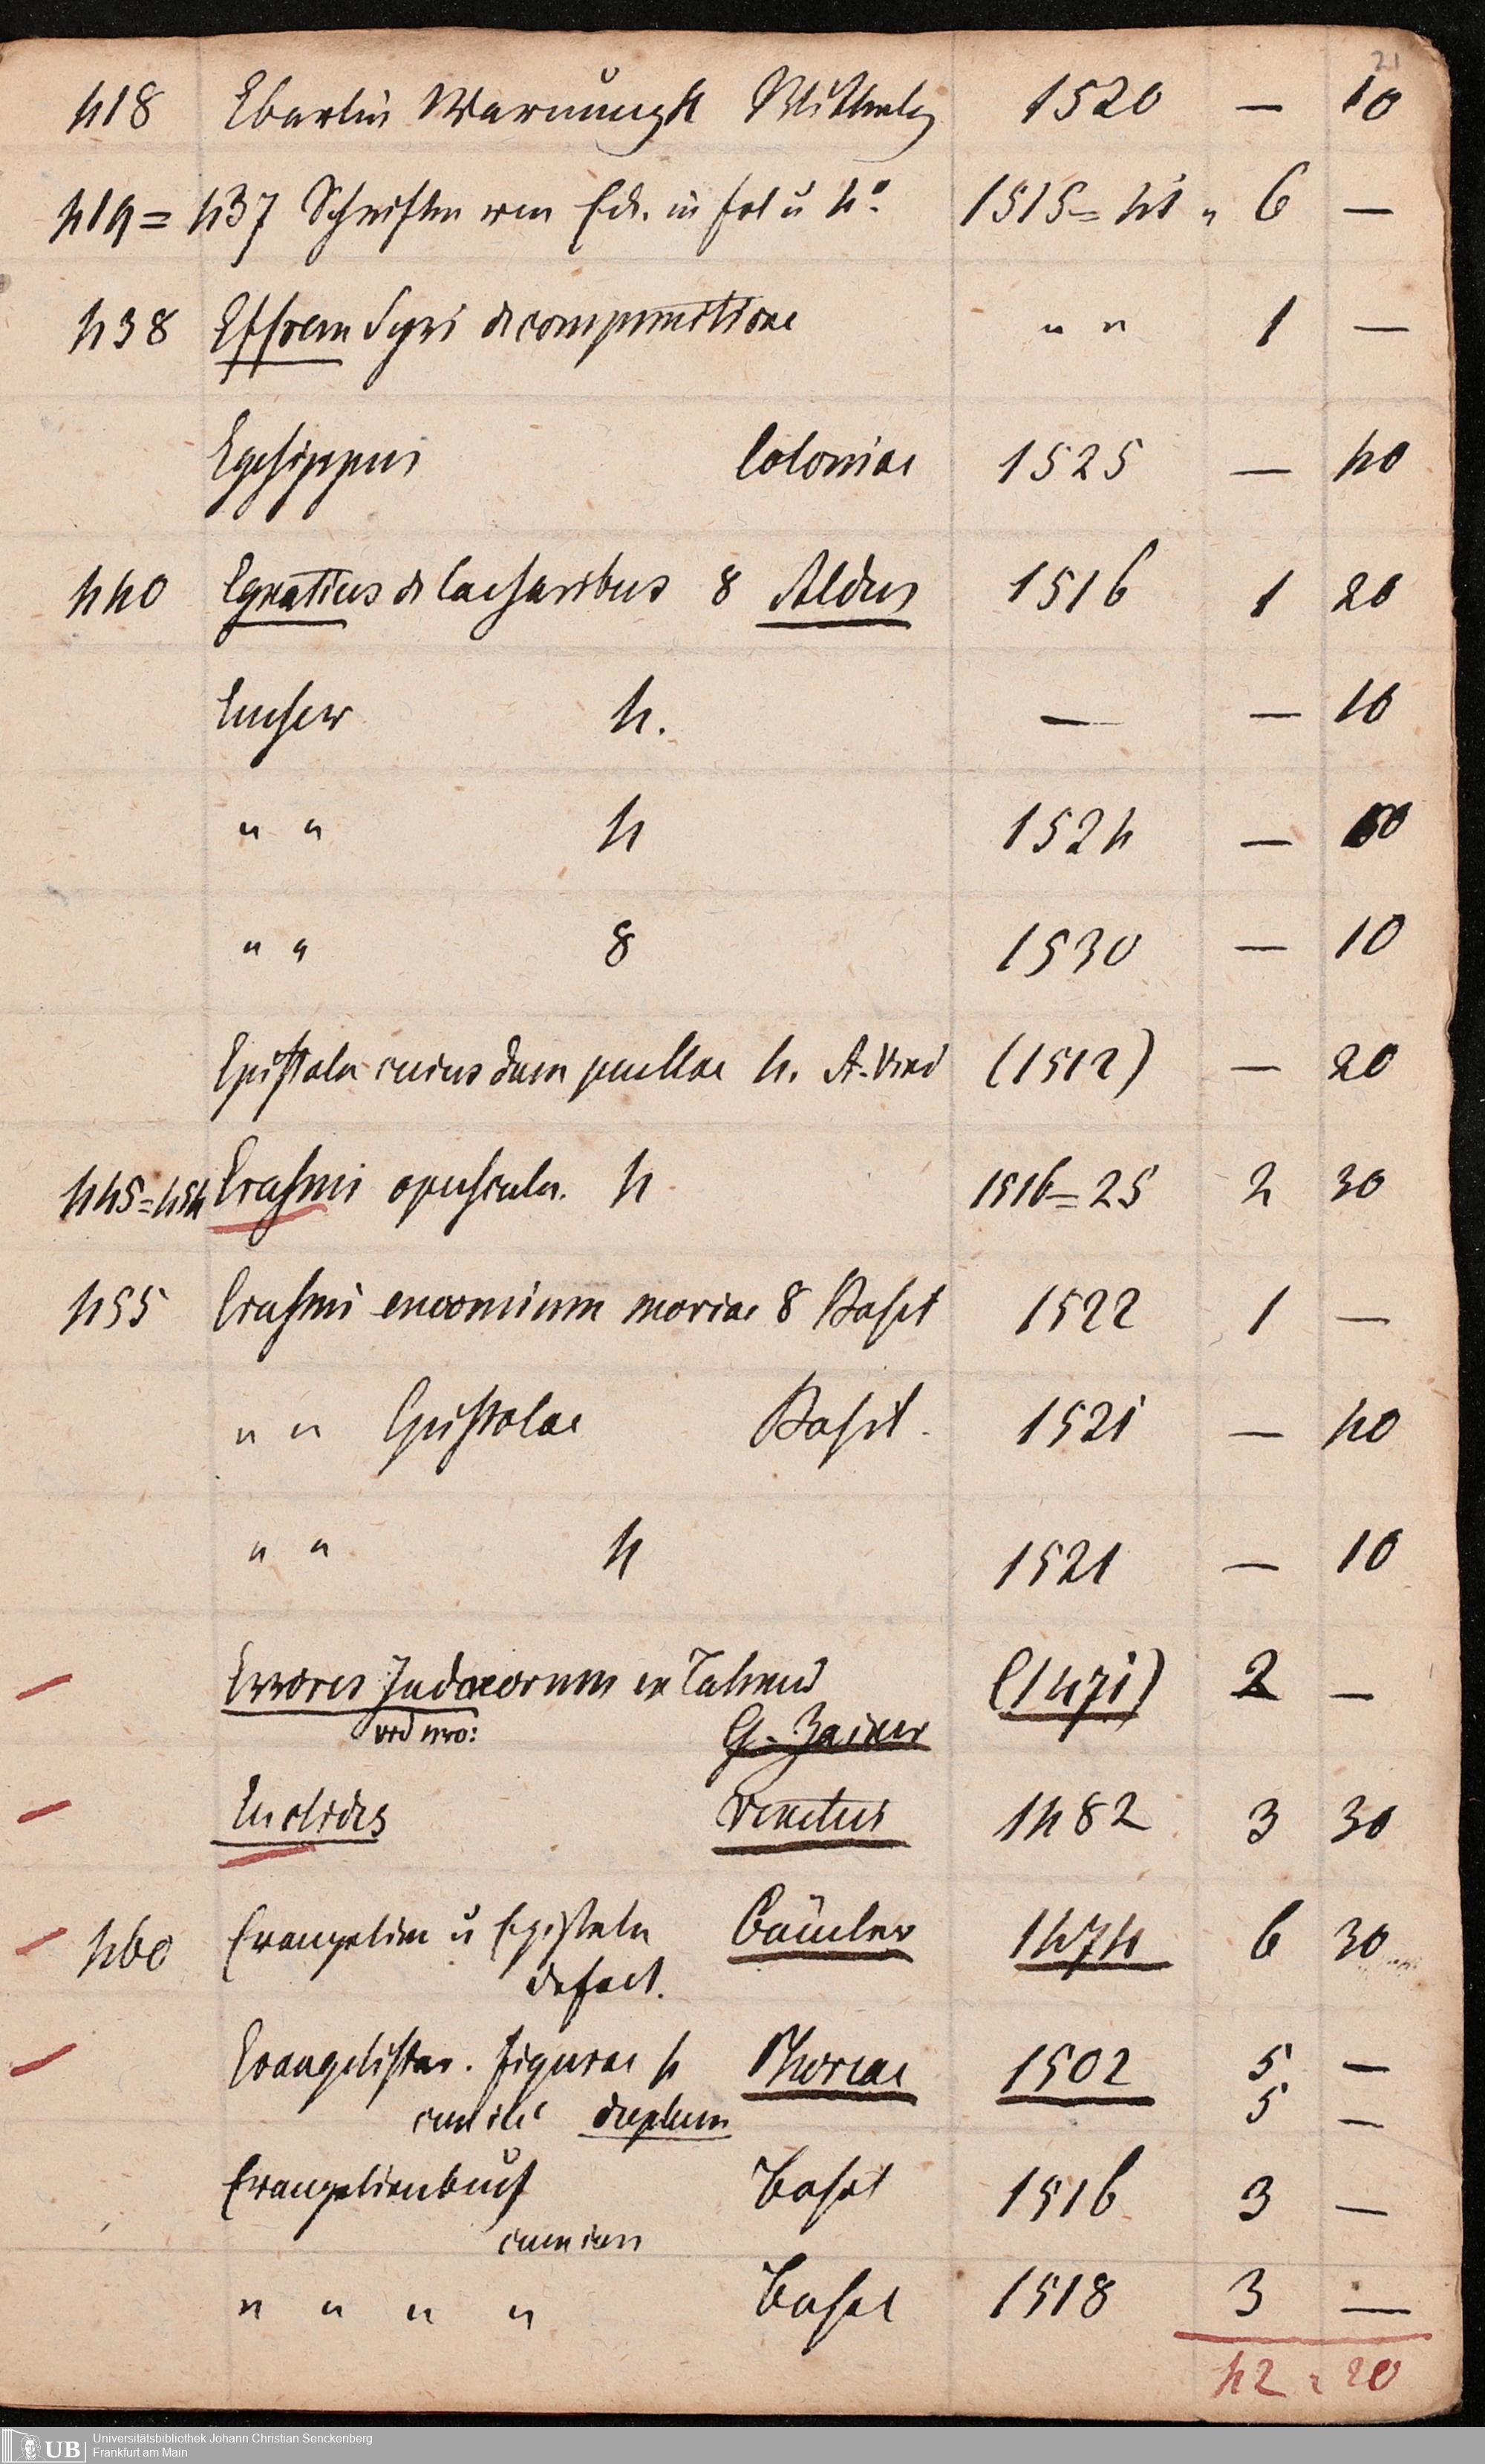 21
418 Eberlin Warnung 4 Wittenbg 1520 — 10
419=437 Schriften von Eck. in fol u 4° 1515=41 „ 6 —
438 Effrem Syri de compunctione " " 1 —
Egesippus Coloniae 1525 — 40
440 Egnatius de Caesaribus 8 Aldus 1516 1 20
Emser 4. — — 10
" " 4 1524 —
" " 8 1530 — 10
Epistola cuiusdam puellae 4. A. Vind (1512) — 20
445=454 Erasmi opuscula. 4 1516=25 2 30
455 Erasmi encomium moriae 8 Basel 1522 1 —
" " Epistolae Basil. 1521 — 40
" " 4 1521 — 10
Errores Judaeorum ex Talmud (1471) 2 —
vid nro: G. Zainer
Euclides Venetiis 1482 3 30
460 Evangelien u Episteln Bämler 1474 6 30
defect.
Evangelistar. figurae 4 Phorcae 1502 5 —
duplum 5 —
Evangelienbuch Basel 1516 3 —
" " " " Basel 1518 3 —
42 " 20
Universitätsbibliothek Johann Christian Senckenberg
UB
Frankfurt am Main